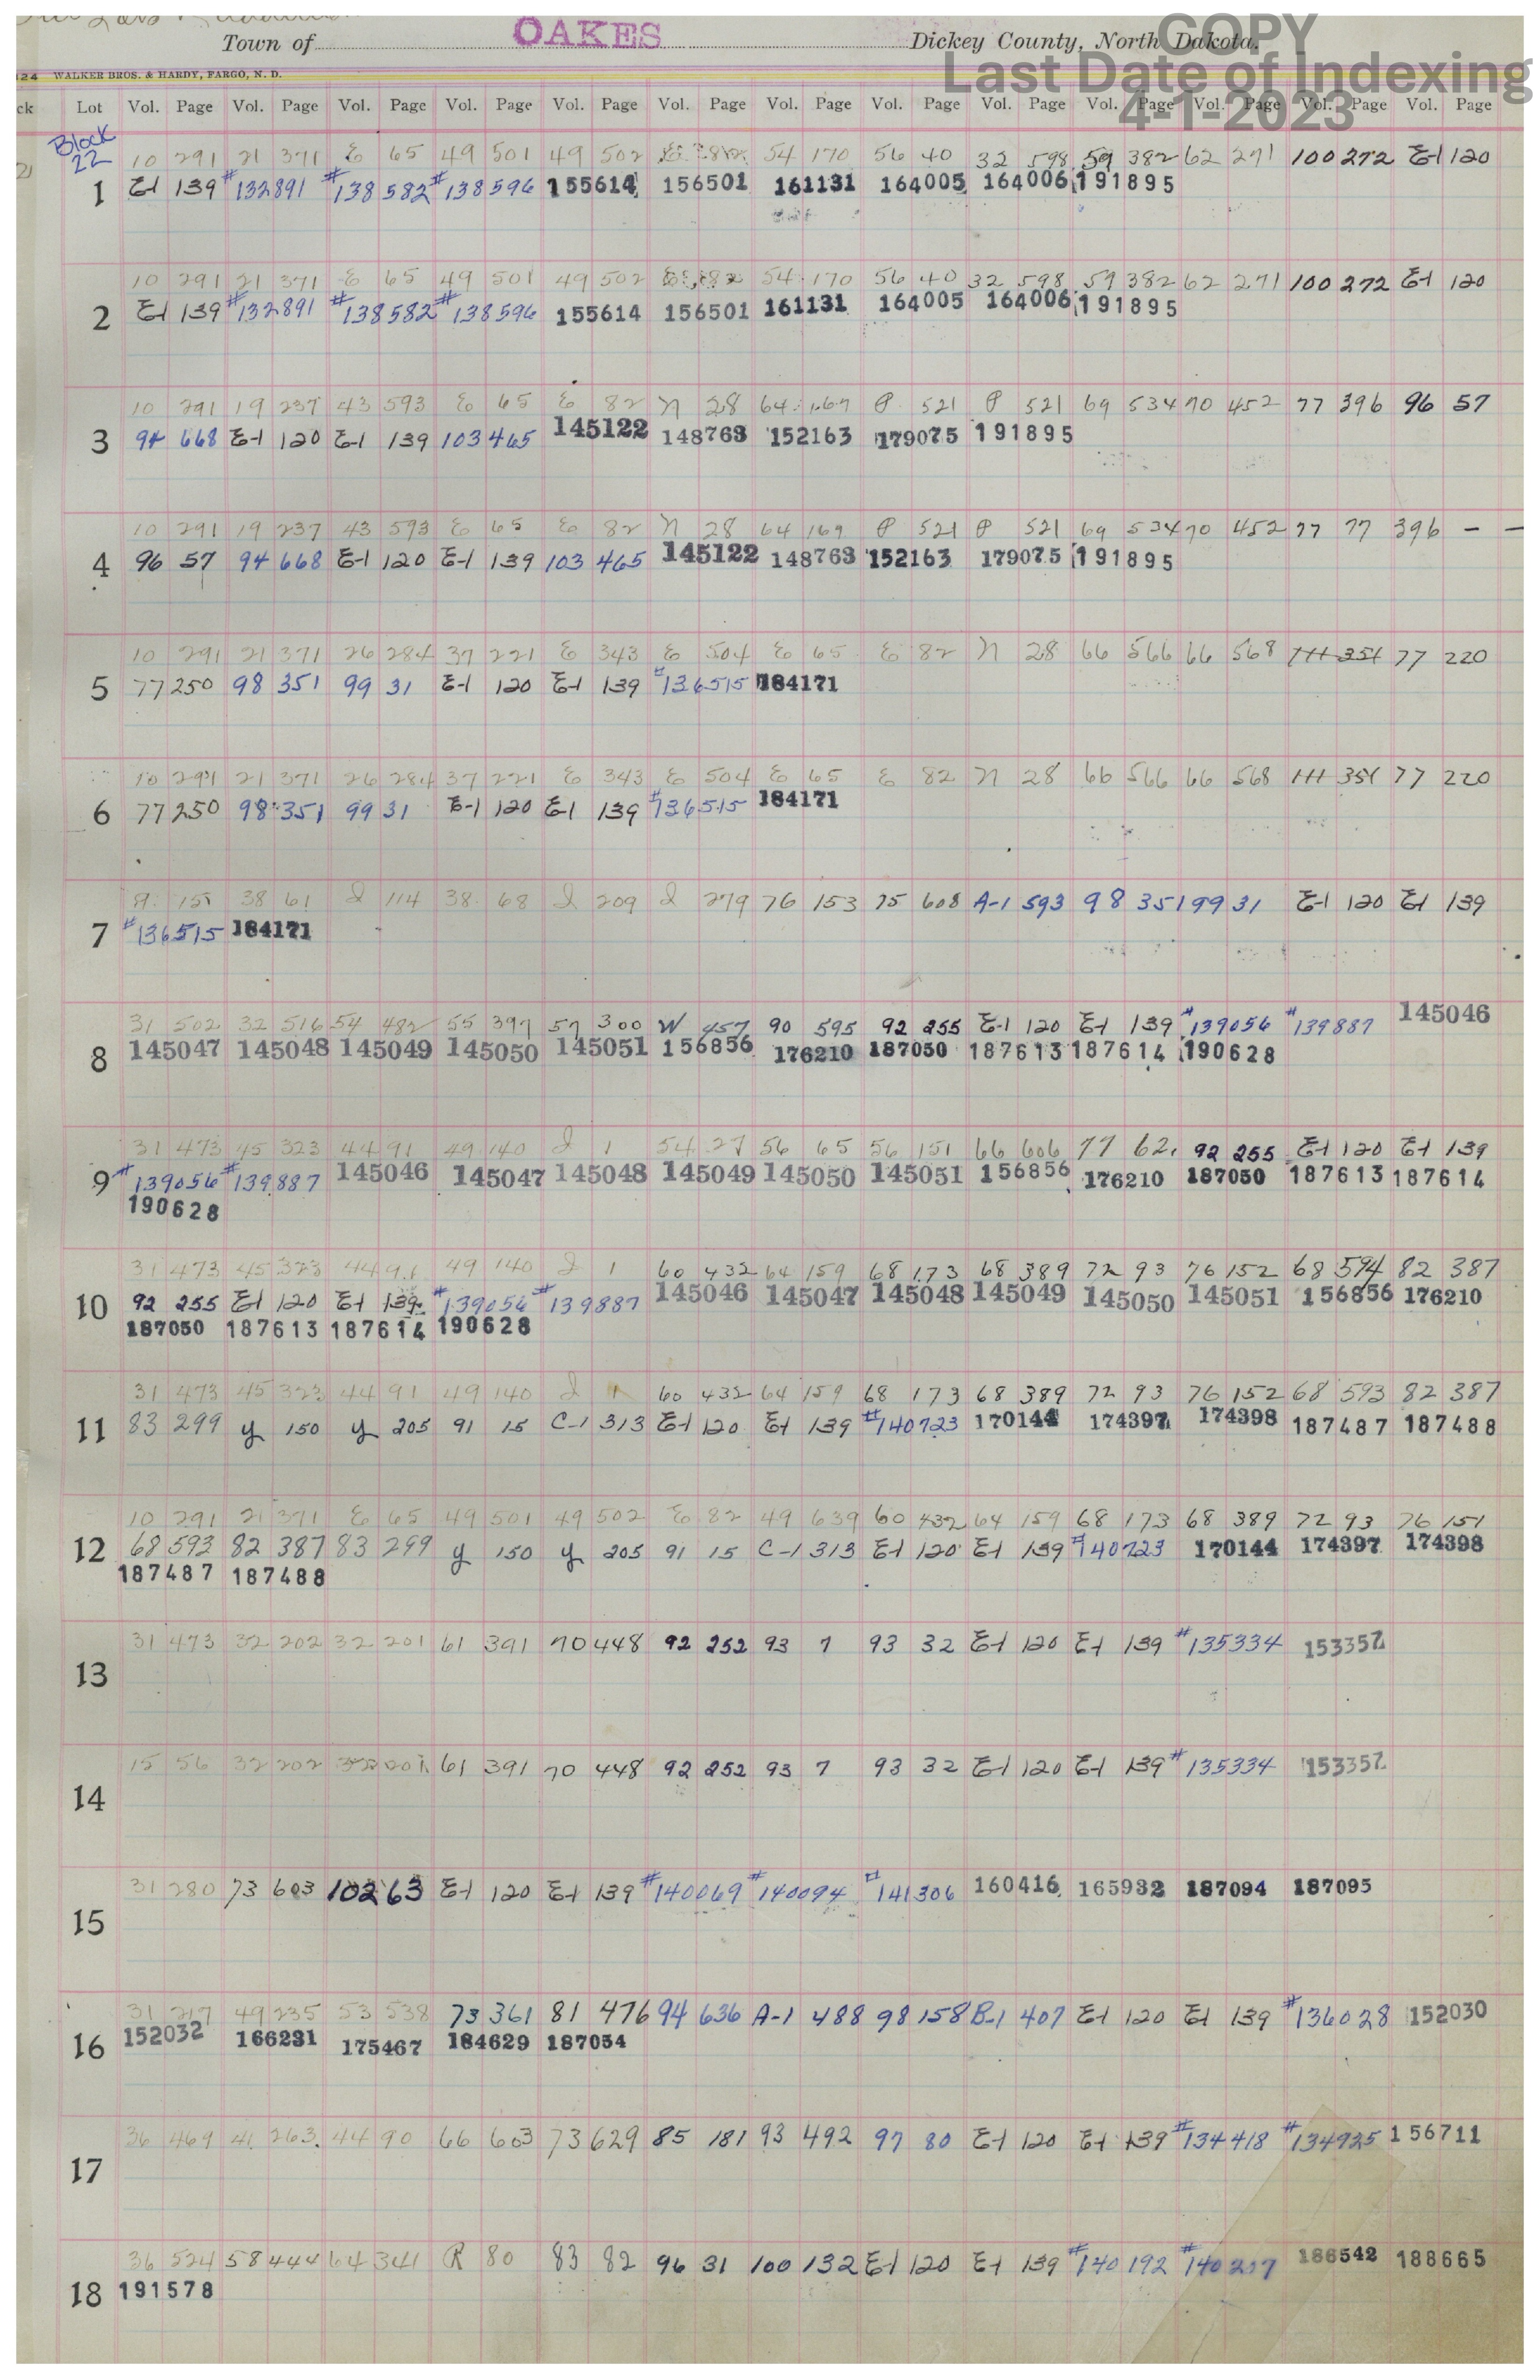 Town of OAKES Dickey County, North Dakota.
COPY
Last Date of Indexing
4-1-2023
124 WALKER BROS. & HARDY, FARGO, N. D.
ck Lot Vol. Page Vol. Page Vol. Page Vol. Page Vol. Page Vol. Page Vol. Page Vol. Page Vol. Page Vol. Page Vol. Page Vol. Page Vol. Page
Block 22
10 291 21 371 E 65 49 501 49 502 E 82 54 170 56 40 32 598 59 382 62 271 100 272 E-1 120
1 E-1 139 #132891 #138582 #138596 155614 156501 161131 164005 164006 191895
10 291 21 371 E 65 49 501 49 502 E 82 54 170 56 40 32 598 59 382 62 271 100 272 E-1 120
2 E-1 139 #132891 #138582 #138596 155614 156501 161131 164005 164006 191895
10 291 19 237 43 593 E 65 E 82 N 28 64 167 P 521 P 521 69 534 70 452 77 396 96 57
3 94 668 E-1 120 E-1 139 103 465 145122 148763 152163 179075 191895
10 291 19 237 43 593 E 65 E 82 N 28 64 169 P 521 P 521 69 534 70 452 77 77 396 — —
4 96 57 94 668 E-1 120 E-1 139 103 465 145122 148763 152163 179075 191895
10 291 21 371 26 284 37 221 E 343 E 504 E 65 E 82 N 28 66 566 66 568 111 351 77 220
5 77 250 98 351 99 31 E-1 120 E-1 139 #136515 184171
10 291 21 371 26 284 37 221 E 343 E 504 E 65 E 82 N 28 66 566 66 568 111 351 77 220
6 77 250 98 351 99 31 E-1 120 E-1 139 #136515 184171
155 38 61 I 114 38 68 I 209 I 279 76 153 75 608 A-1 593 98 351 99 31 E-1 120 E-1 139
7 #136515 184171
31 502 32 516 54 482 55 397 57 300 W 457 90 595 92 255 E-1 120 E-1 139 #139056 #139887 145046
8 145047 145048 145049 145050 145051 156856 176210 187050 187613 187614 190628
31 473 45 323 44 91 49 140 I 1 54 27 56 65 56 151 66 606 77 62 92 255 E-1 120 E-1 139
9 #139056 #139887 145046 145047 145048 145049 145050 145051 156856 176210 187050 187613 187614
190628
31 473 45 323 44 91 49 140 I 1 60 432 64 159 68 173 68 389 72 93 76 152 68 594 82 387
10 92 255 E-1 120 E-1 139 #139056 #139887 145046 145047 145048 145049 145050 145051 156856 176210
187050 187613 187614 190628
31 473 45 323 44 91 49 140 I 1 60 432 64 159 68 173 68 389 72 93 76 152 68 593 82 387
11 83 299 y 150 y 205 91 15 C-1 313 E-1 120 E-1 139 #140723 170144 174397 174398 187487 187488
10 291 21 371 E 65 49 501 49 502 E 82 49 639 60 432 64 159 68 173 68 389 72 93 76 151
12 68 593 82 387 83 299 y 150 y 205 91 15 C-1 313 E-1 120 E-1 139 #140723 170144 174397 174398
187487 187488
31 473 32 202 32 201 61 391 70 448 92 252 93 7 93 32 E-1 120 E-1 139 #135334 153357
13
15 56 32 202 32 201 61 391 70 448 92 252 93 7 93 32 E-1 120 E-1 139 #135334 153357
14
31 280 73 603 102 63 E-1 120 E-1 139 #140069 #140094 #141306 160416 165932 187094 187095
15
31 217 49 235 53 538 73 361 81 476 94 636 A-1 488 98 158 B-1 407 E-1 120 E-1 139 #136028 152030
16 152032 166231 175467 184629 187054
36 469 41 263 44 90 66 603 73 629 85 181 93 492 97 80 E-1 120 E-1 139 #134418 #134925 156711
17
36 524 58 444 64 341 R 80 83 82 96 31 100 132 E-1 120 E-1 139 #140192 #140207 186542 188665
18 191578